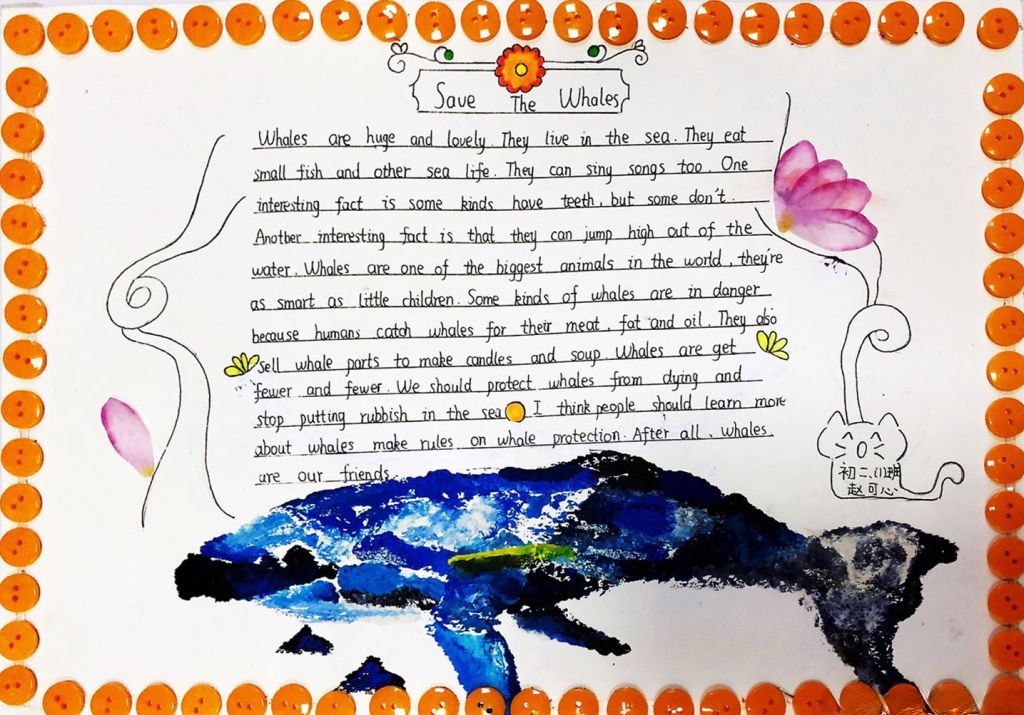 Save The Whales
Whales are huge and lovely. They live in the sea. They eat
small fish and other sea life. They can sing songs too. One
interesting fact is some kinds have teeth, but some don't.
Another interesting fact is that they can jump high out of the
water. Whales are one of the biggest animals in the world, they're
as smart as little children. Some kinds of whales are in danger
because humans catch whales for their meat, fat and oil. They also
sell whale parts to make candles and soup. Whales are get
fewer and fewer. We should protect whales from dying and
stop putting rubbish in the sea. I think people should learn more
about whales make rules on whale protection. After all, whales
are our friends.
初二、(1)班
赵可心